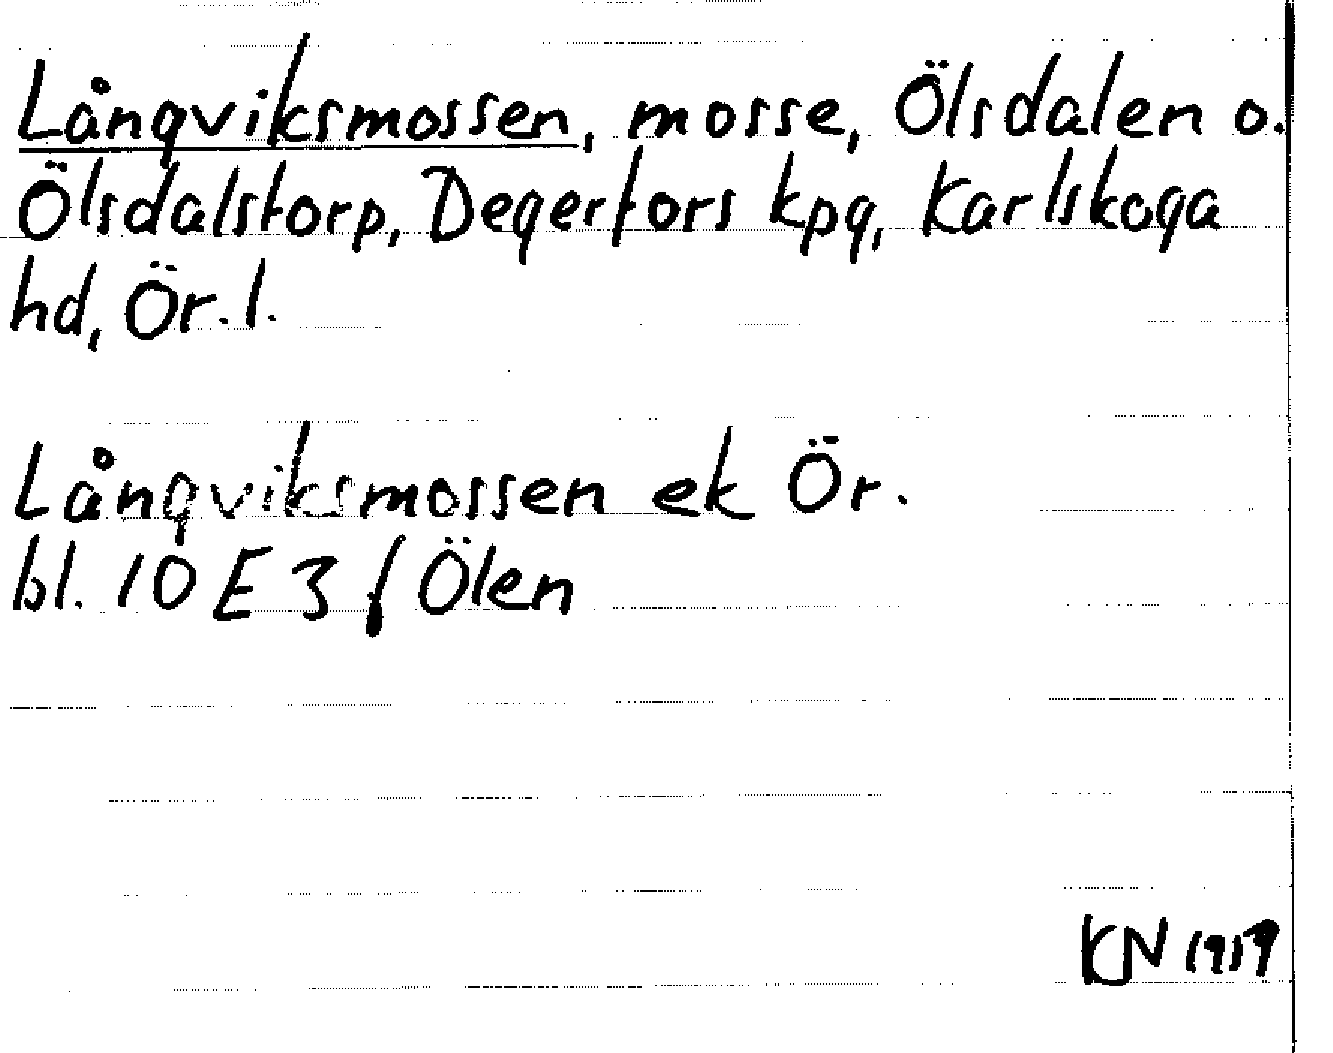 Långviksmossen, mosse, Ölsdalen o.
Ölsdalstorp, Degerfors kpg, Karlskoga
hd, Ör. l.
Långviksmossen ek Ör.
bl. 10 E 3 f Ölen
KN